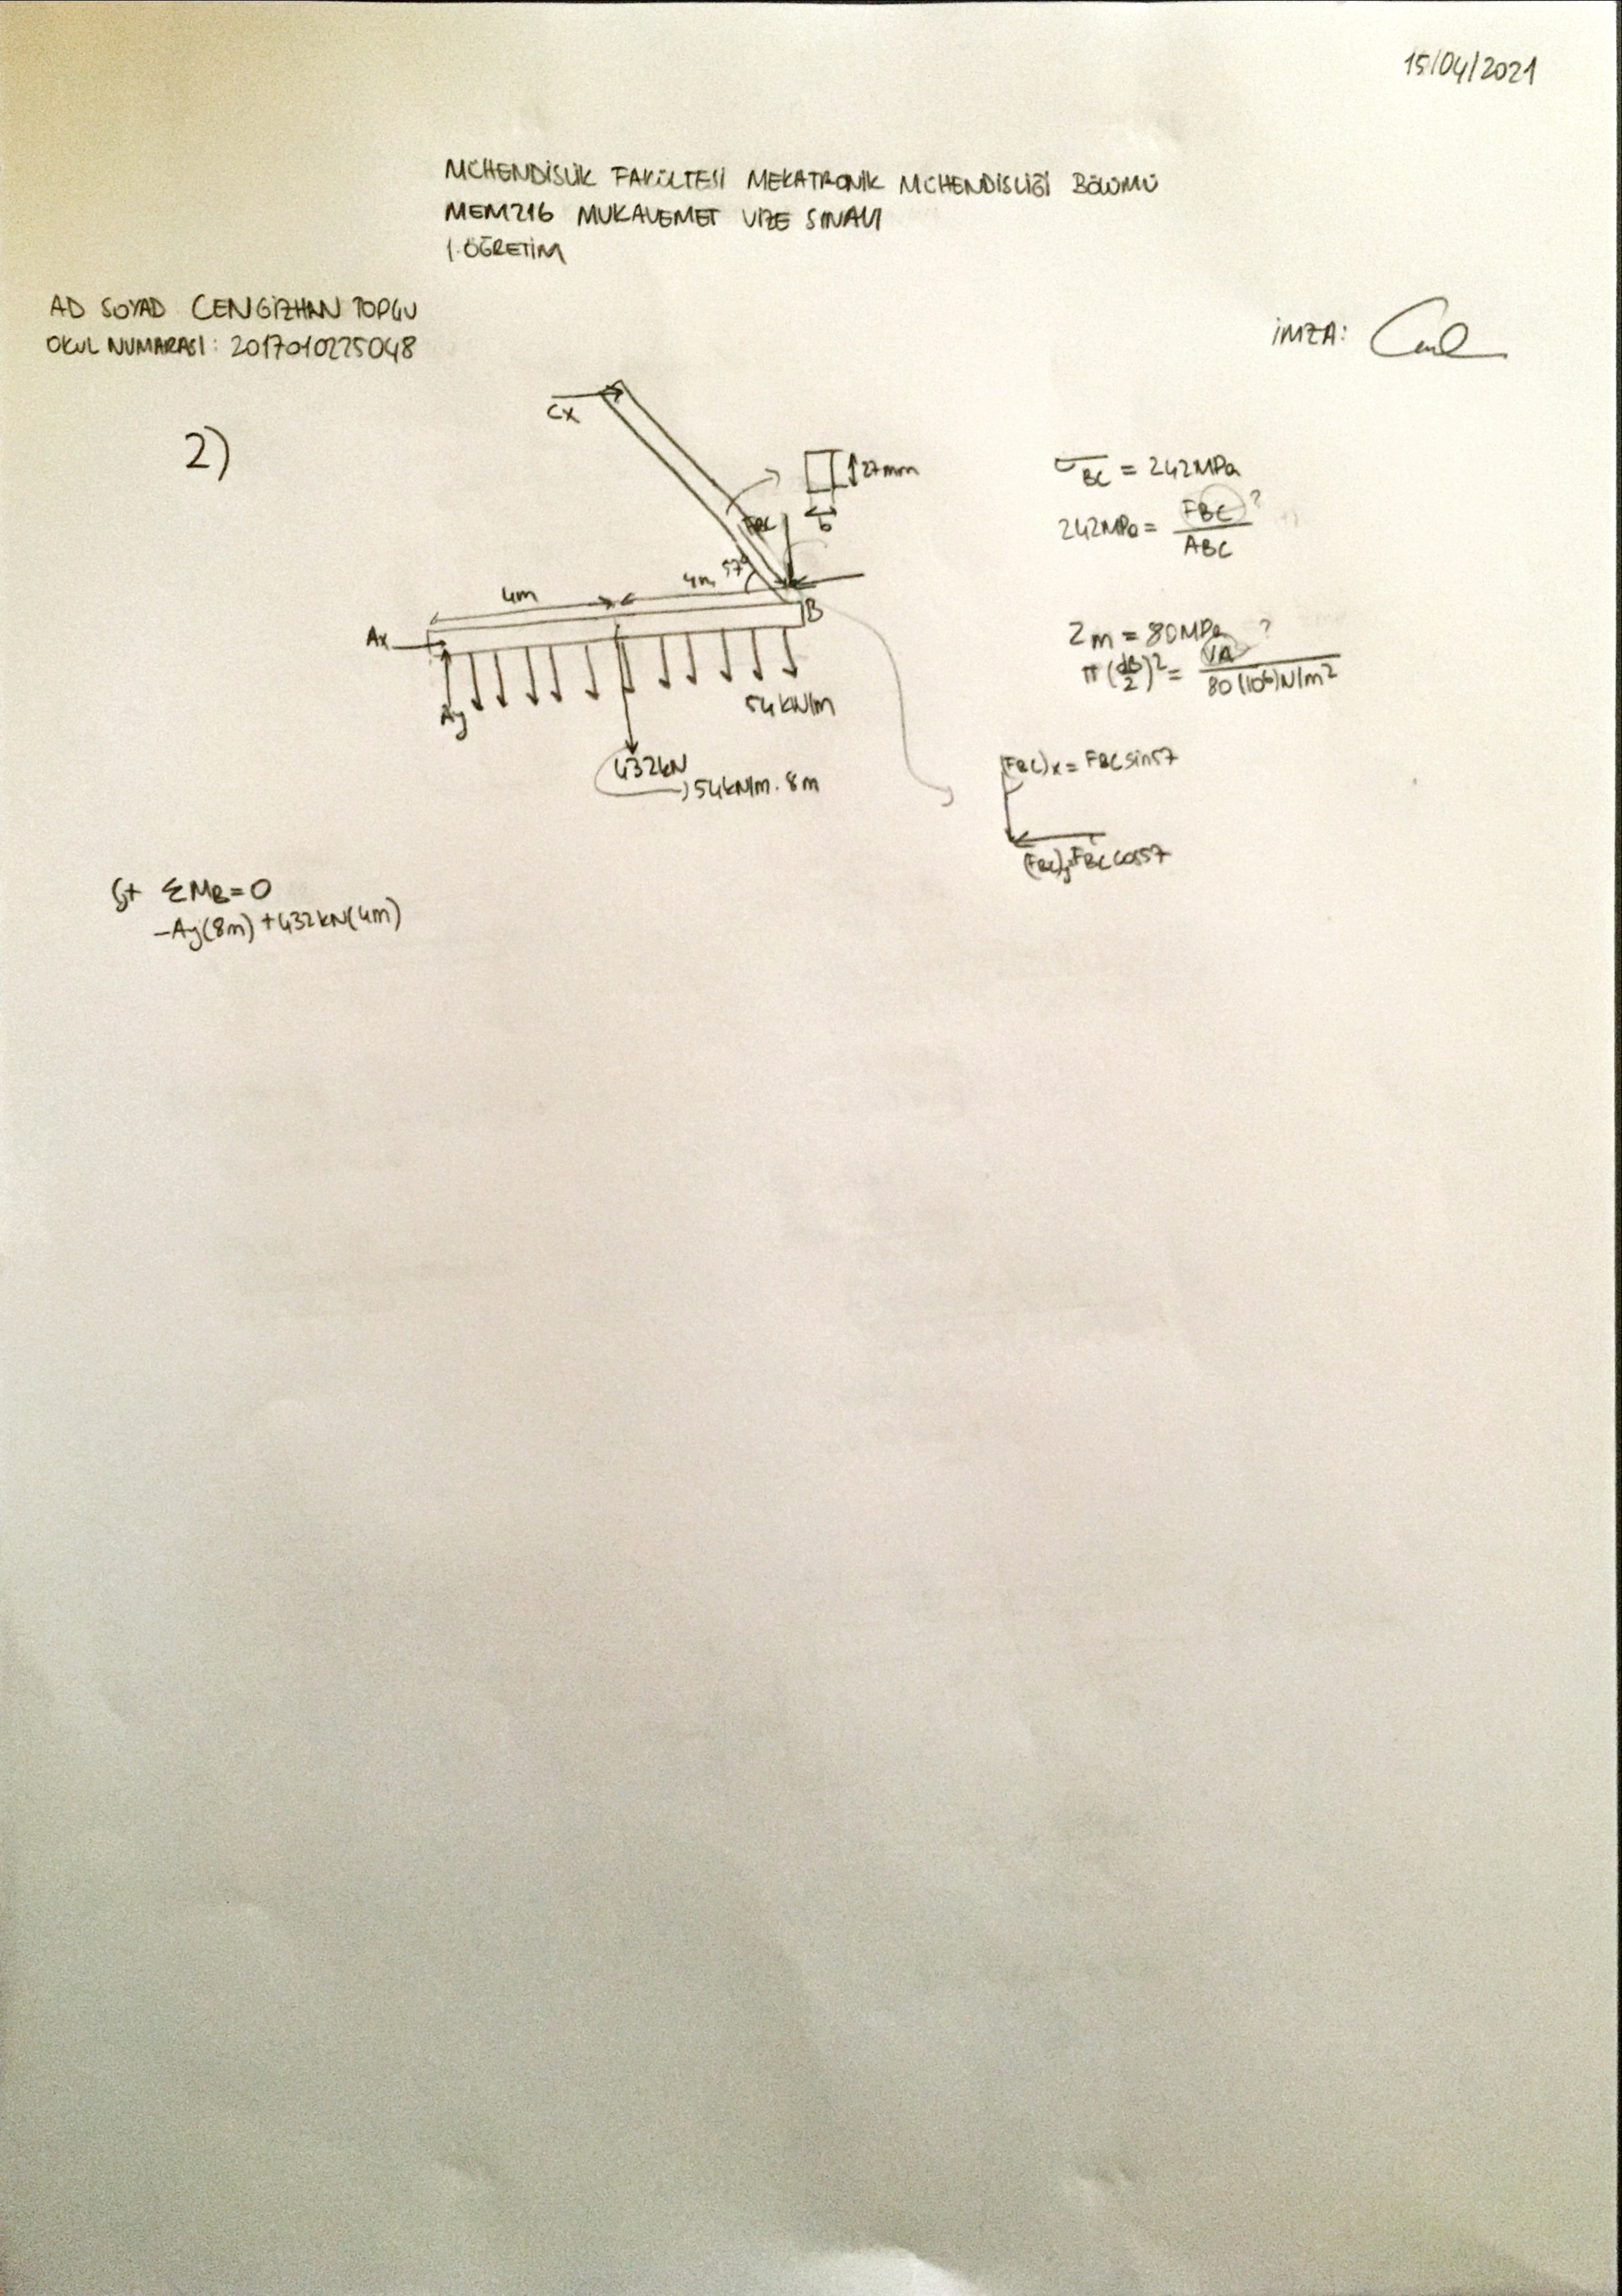 15/04/2021
MÜHENDİSLİK FAKÜLTESİ MEKATRONİK MÜHENDİSLİĞİ BÖLÜMÜ
MEM216 MUKAVEMET VİZE SINAVI
1.ÖĞRETİM
AD SOYAD CENGİZHAN TOPÇU
OKUL NUMARASI: 2017010225048
İMZA:
2)
Cx
27mm
b
FBC
57°
4m
4m
B
Ax
Ay
54kN/m
432kN
54kN/m.8m
σBC = 242MPa
242MPa = FBC / ABC ?
Zm = 80MPa ?
π(dB/2)² = VA / 80(10⁶)N/m²
(FBC)x = FBC sin57
(FBC)y = FBC cos57
↺+ ΣMB=0
-Ay(8m)+432kN(4m)